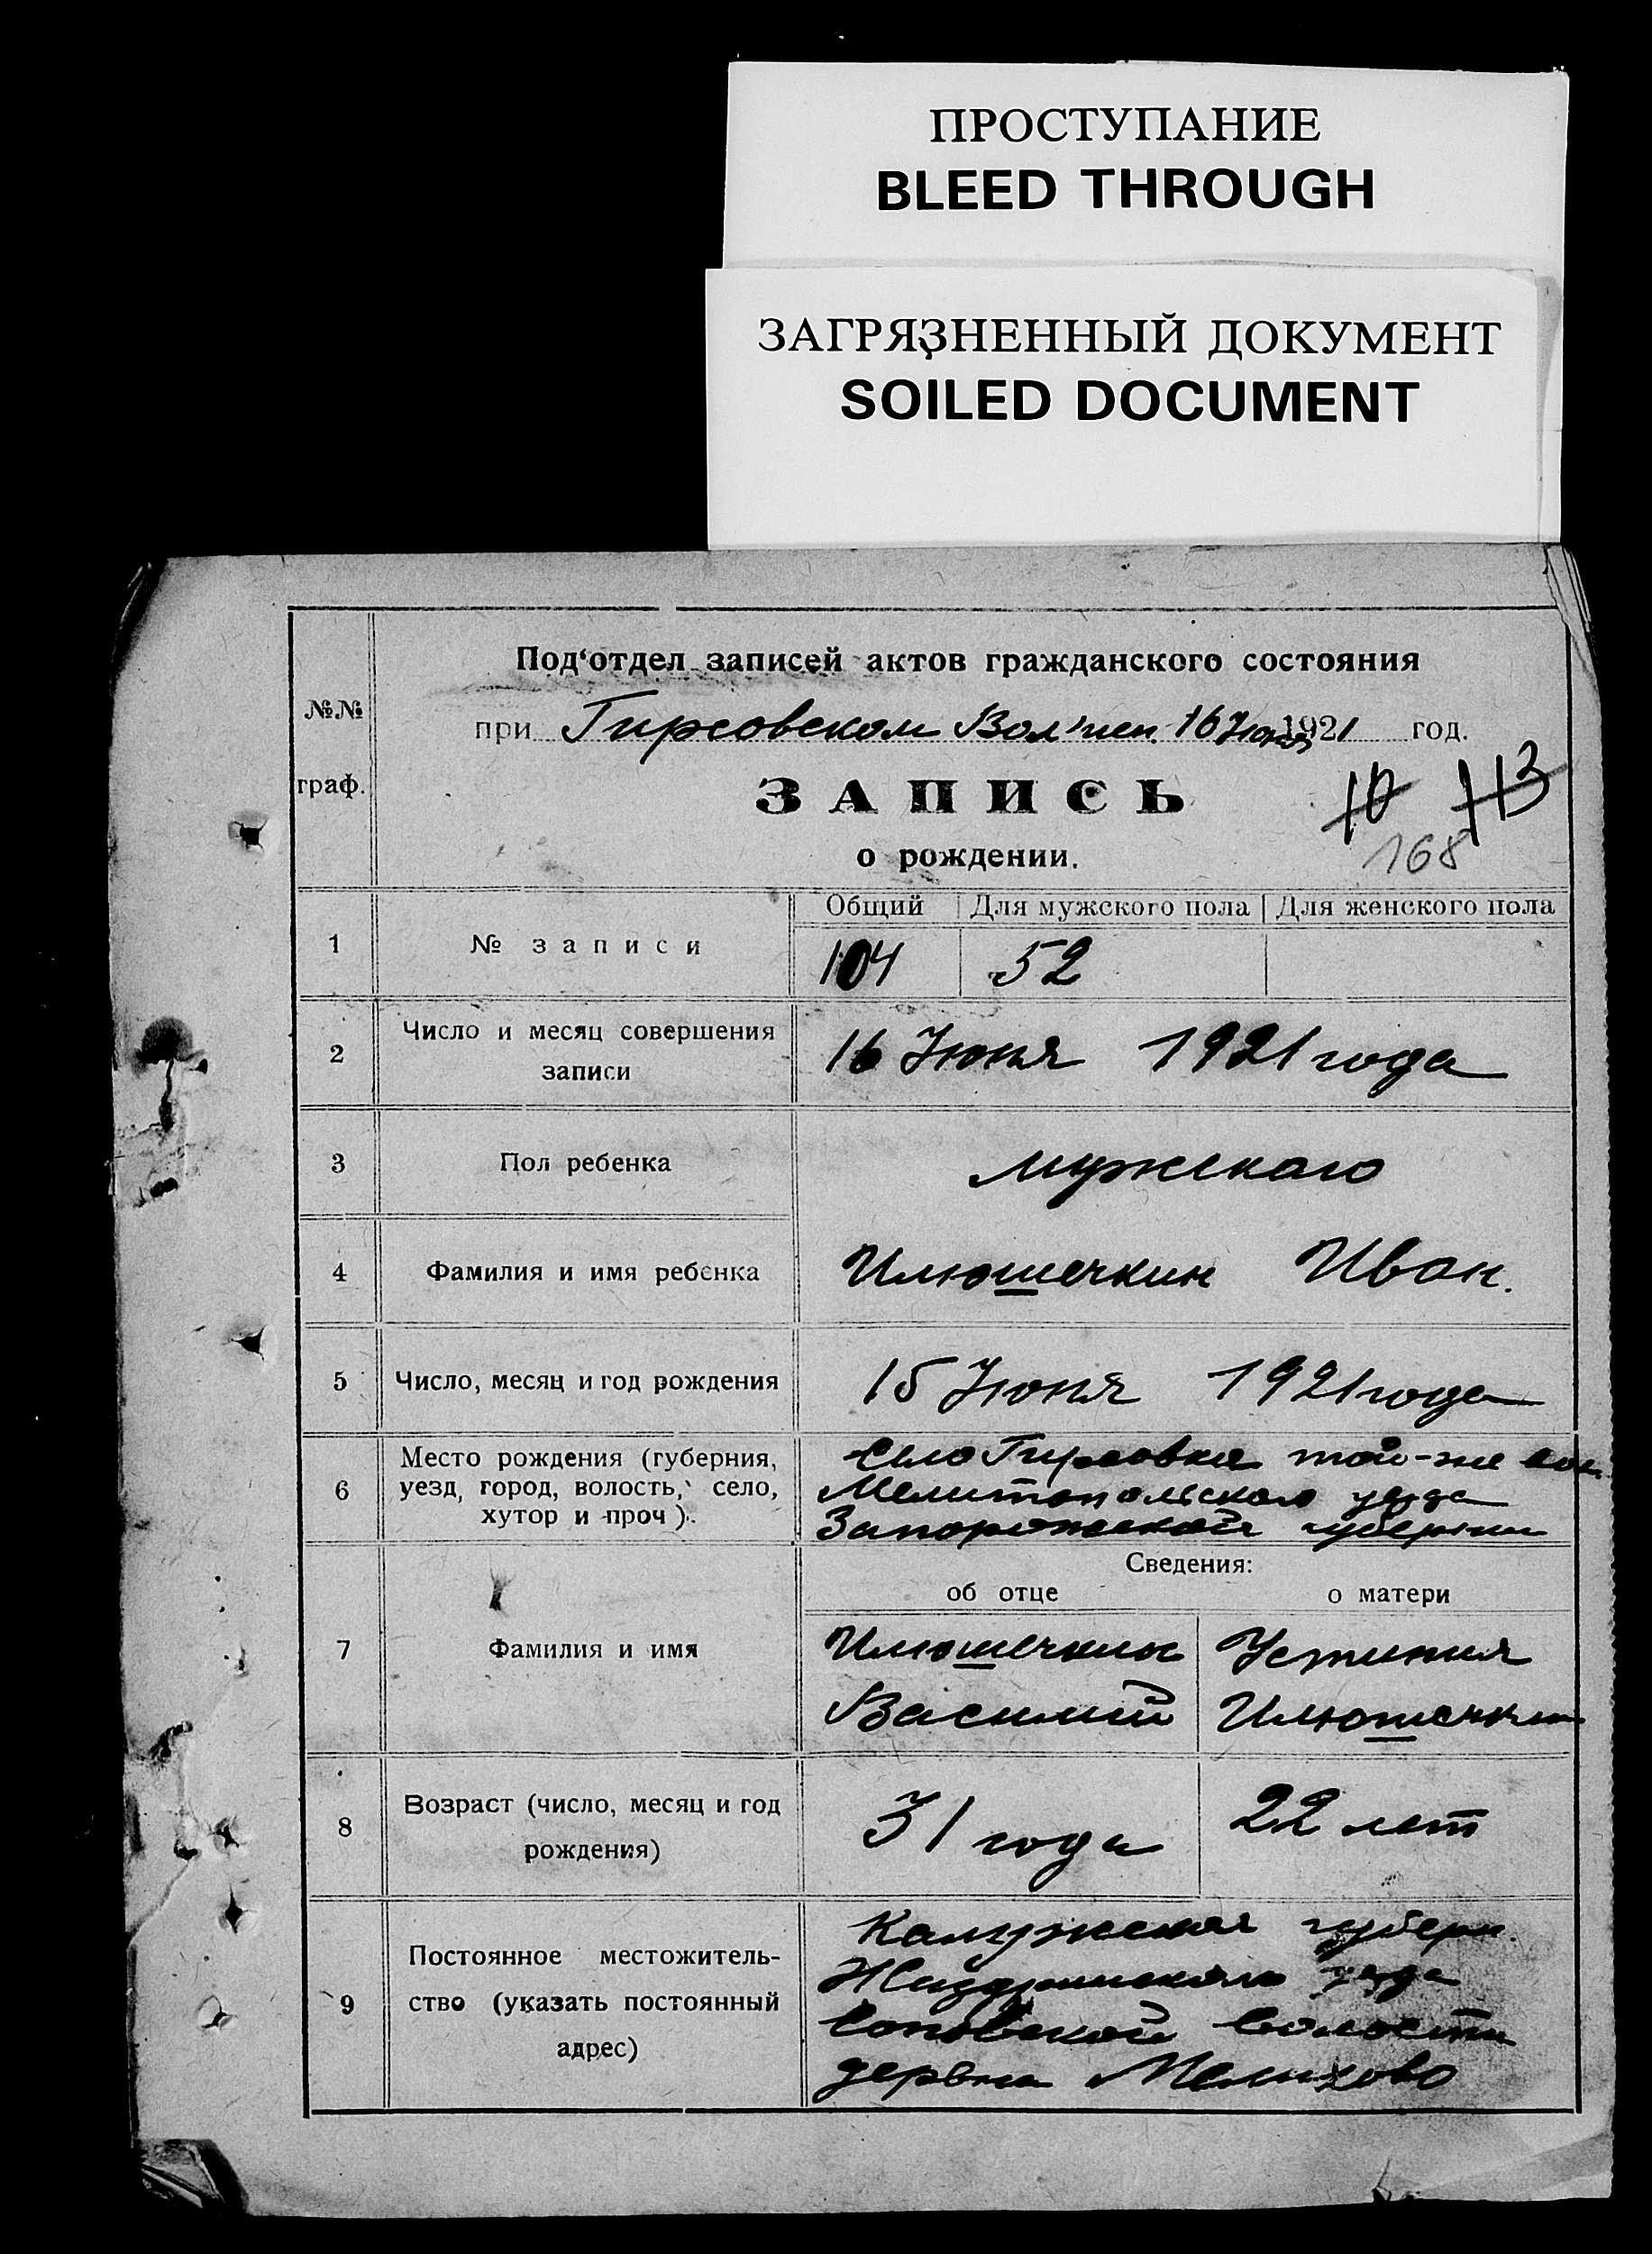 ПРОСТУПАНИЕ
BLEED THROUGH
ЗАГРЯЗНЕННЫЙ ДОКУМЕНТ
SOILED DOCUMENT
№№
граф.
Под‘отдел записей актов гражданского состояния
при Гирсовском Вол 16 Июня 1921 год.
ЗАПИСЬ
10 113
о рождении.
168
Общий Для мужского пола Для женского пола
1 № записи 104 52
2 Число и месяц совершения
записи
16 Июня 1921 года
3 Пол ребенка мужскаго
4 Фамилия и имя ребенка Илюшечкин Иван.
5 Число, месяц и год рождения 15 Июня 1921 года
6 Место рождения (губерния,
уезд, город, волость, село,
хутор и проч).
Село Гирсовка той-же вол.
Мелитопольскаго уезда
Запорожской губернии
Сведения:
об отце о матери
7 Фамилия и имя
Илюшечкин
Василий
Устиния
Илюшечкин
8 Возраст (число, месяц и год
рождения)
31 года
22 лет
9 Постоянное местожитель-
ство (указать постоянный
адрес)
Калужская губерн.
Жиздринскаго уезда
волости
дервня Мелихово